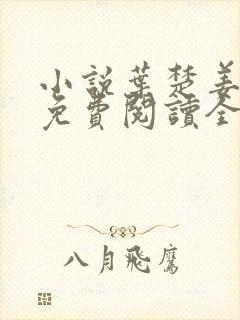 小說葉楚姜
免費閱讀全
八月飛鷹